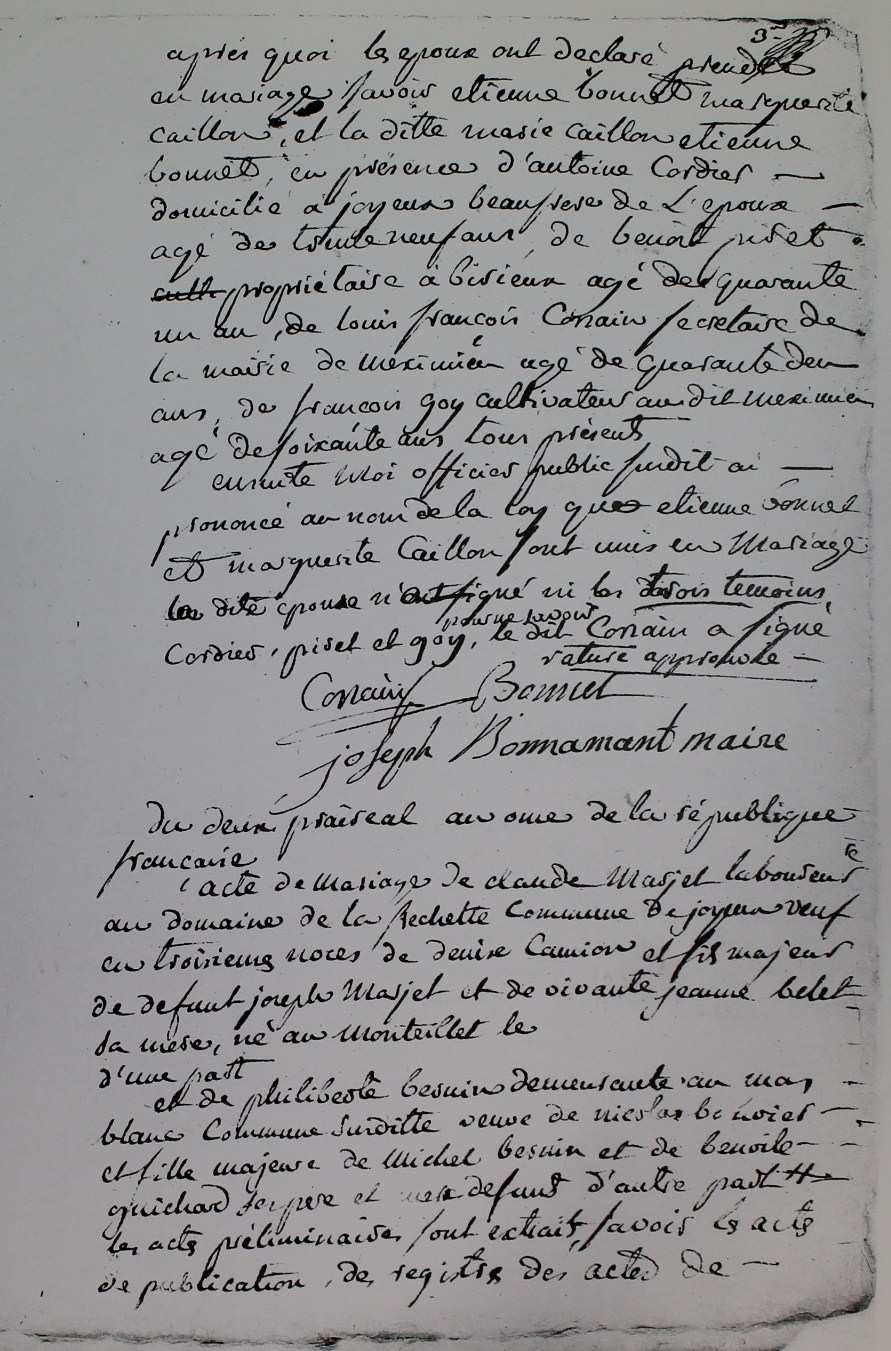 3e
après quoi les epoux ont declaré prendre
en mariage savoir etienne bonnet marguerite
caillon, et la ditte marie caillon etienne
bonnet, en présence d'antoine Cordier —
domicilié à joyeux beaufrere de L'epoux —
agé de trente neuf ans, de benoit piset
cult propriétaire à birieux agé de quarante
un an, de louis françois Corrain secretaire de
la mairie de meximieu agé de quarante deux
ans, de francois goy cultivateur audit meximieu
agé de soixante ans tous présents
ensuite Moi officier public susdit ai —
prononcé au nom de la loy que etienne bonnet
et marguerite Caillon sont unis en Mariage
la dite epouse n'ont signé ni les trois temoins
pour ne savoir
Cordier, piset et goy, le dit Corrain a signé
rature approuvée —
Corrain Bonnet
joseph Bonnamant maire
du deux prairéal an onze de la république
francaise
acte de Mariage de claude Marjet laboureur
au domaine de la Rechette Commune de joyeux veuf
en troisieme noces de denise Camion et fils majeur
de defunt joseph Marjet et de vivante jeanne belet
sa mere, né au Monteillet le
d'une part
et de philiberte besnin demeurante au mas
blanc Commune surditte veuve de nicolas
et fille majeure de Michel besnin et de benoite
guichard ses pere et mere defunts d'autre part
les actes préliminaires sont extraits, savoir les actes
de publication, des registres des actes de —